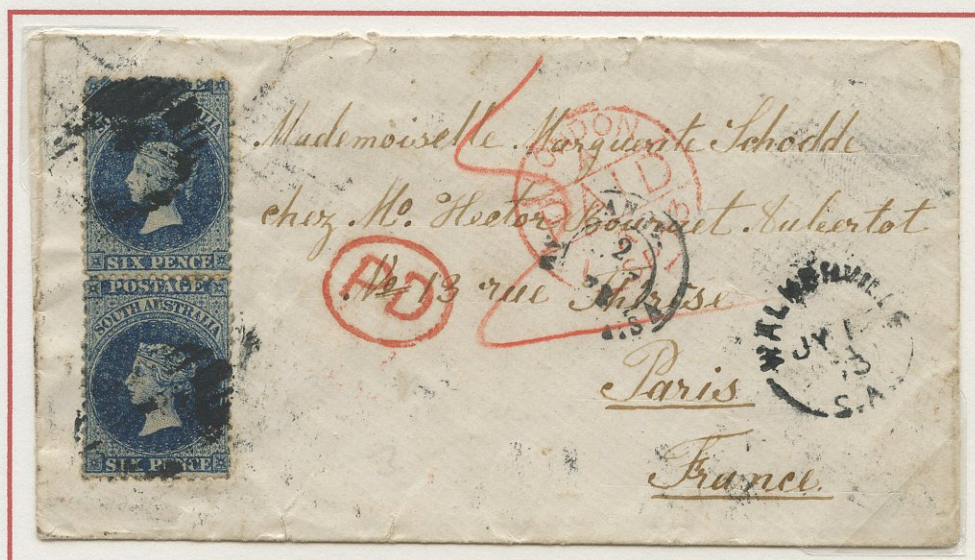 POSTAGE
SOUTH AUSTRALIA
SIX PENCE
POSTAGE
SOUTH AUSTRALIA
SIX PENCE
Mademoiselle Marguerite Schodde
chez Mo. Hector Aubertot
No 13 rue Thérèse
Paris
France.
LONDON
PAID
PD
WALKERVILLE
JY 1
73
S.A.